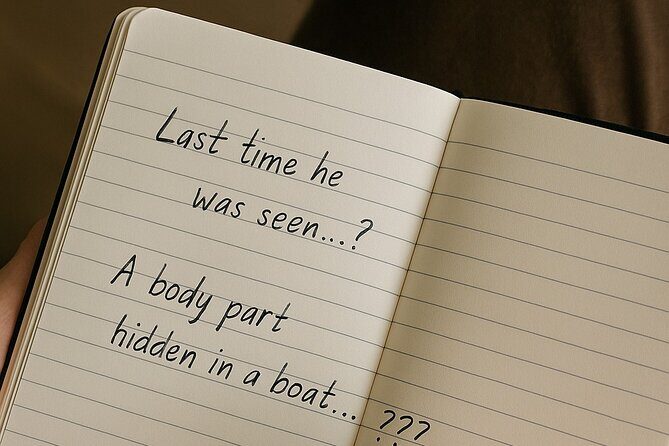 Last time he
was seen....?
A body part
hidden in a boat... ???